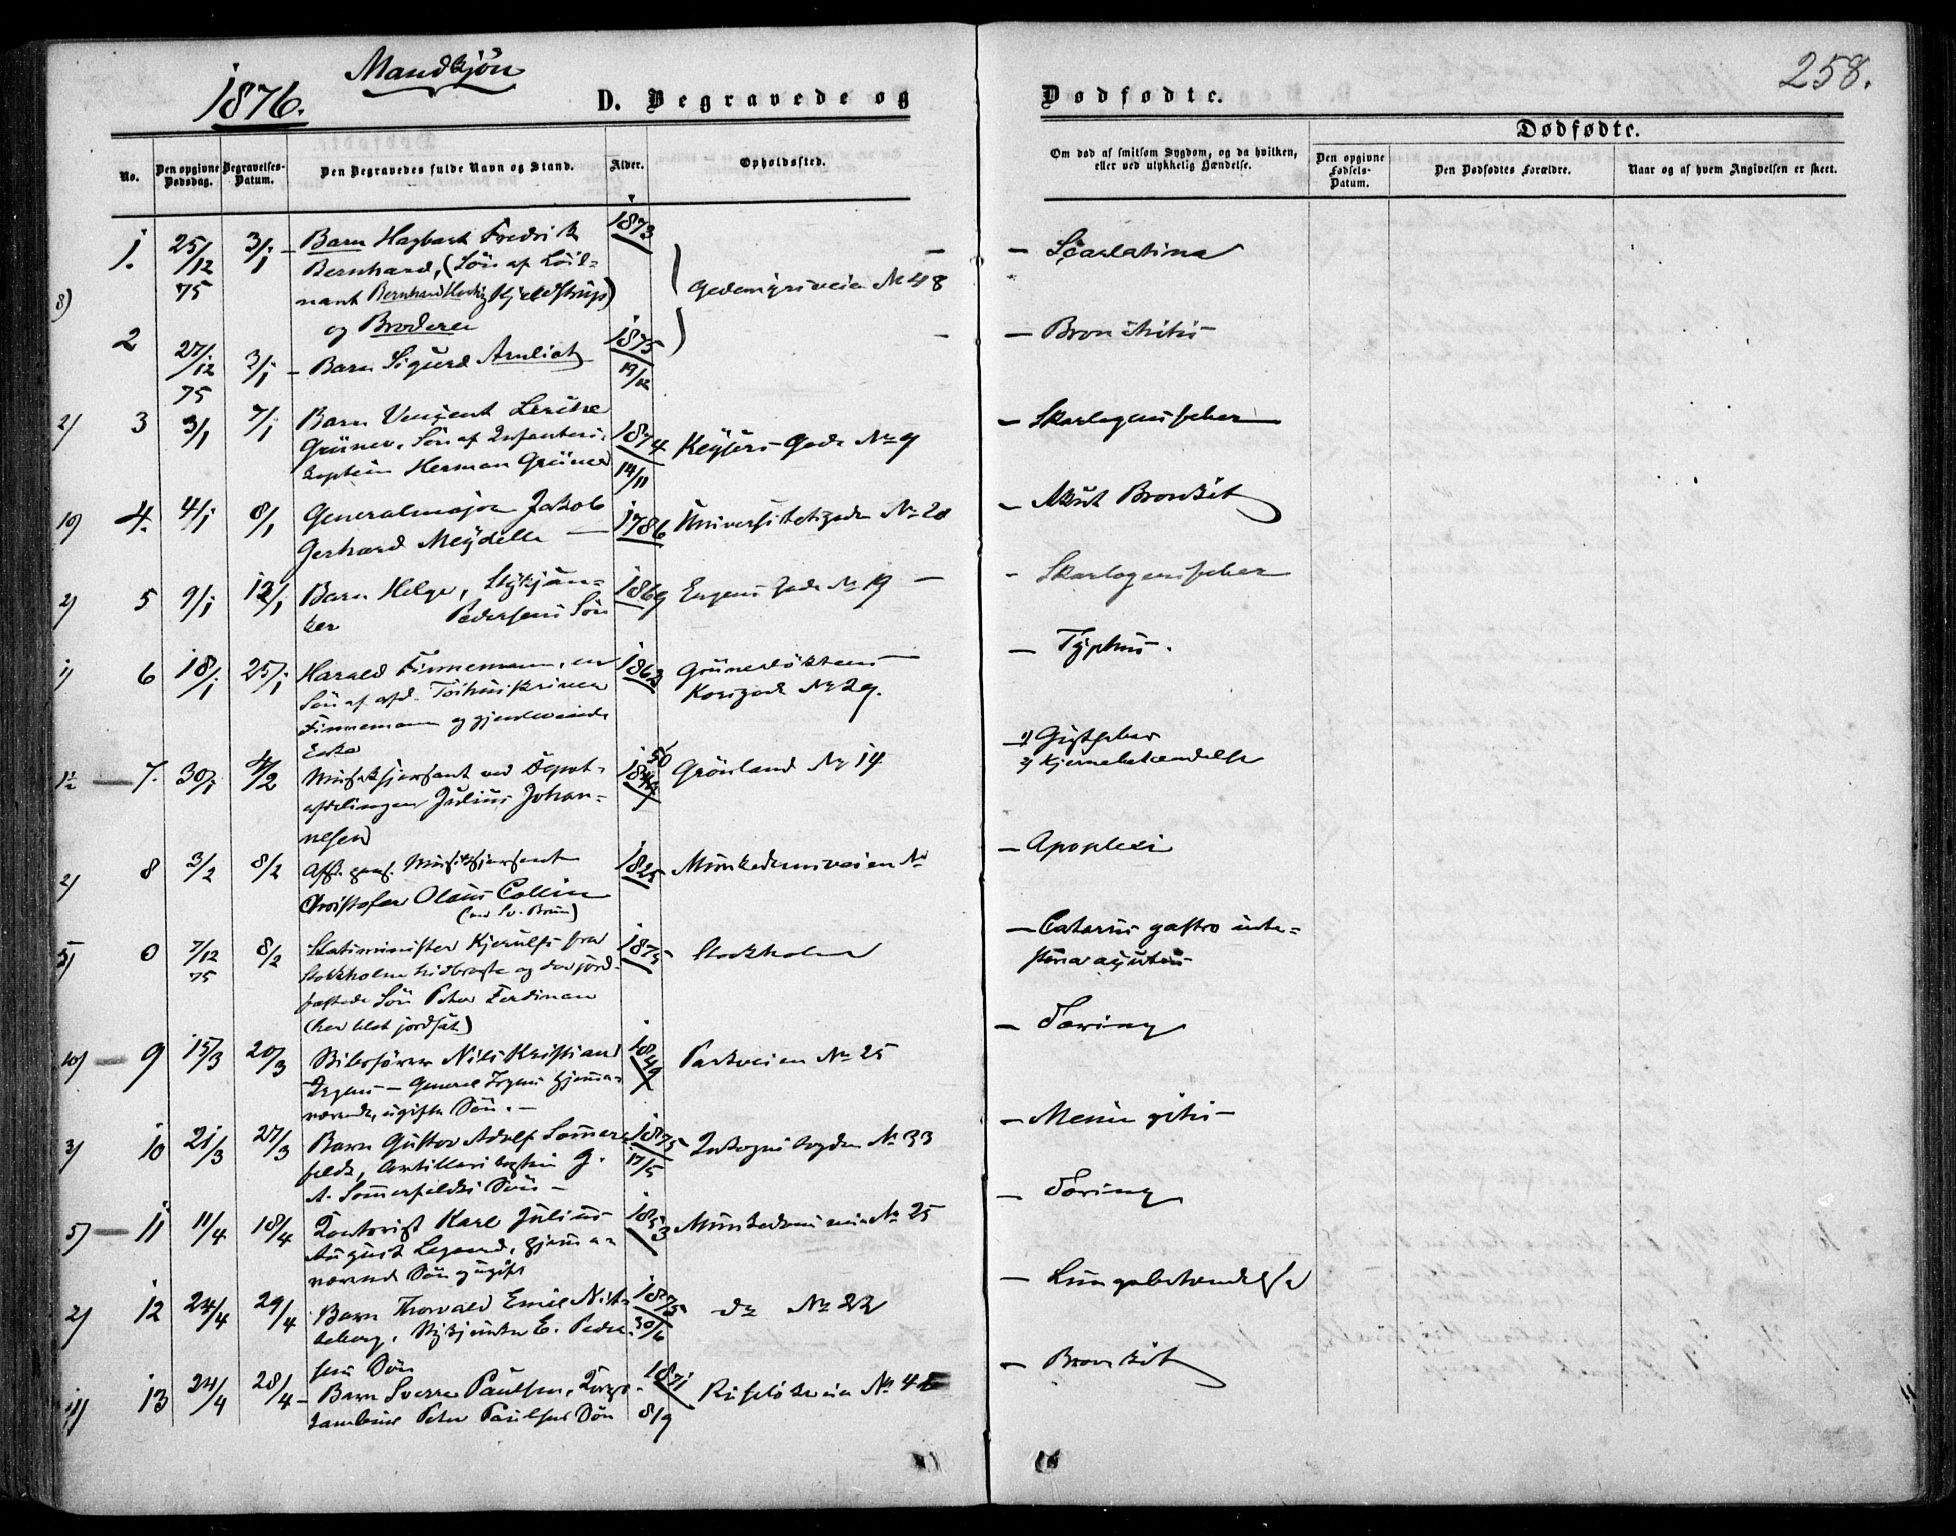 1876.
Mandkjøn
D. Begravede og
Dødfødte.
258.
Dødfødte.
No.
Den opgivne Dødsdag.
Begravelses-Datum.
Den Begravedes fulde Navn og Stand.
Alder.
Opholdssted.
Om død af smitsom Sygdom, og da hvilken,
eller ved ulykkelig Hændelse.
Den opgivne Fødsels-Datum.
Den Dødfødtes Forældre.
Naar og af hvem Angivelsen er skeet.
8) 1. 25/12 75 3/1 – Barn Hagbart Fredrik 1873 — – Scarlatina
Bernhard, (Søn af
nant Bernhard Kjeldstrup) No 48
og Broderen
2 27/12 75 3/1 – Barn Sigurd 1875 19/12 – – Bronchitis
2) 3 3/1 7/1 Barn Vincent Lerche 1874 14/11 Keysers Gade No 9 – Skarlagensfeber
Grüner, Søn af Infanteri-
kaptein Herman Grüner
10) 4. 4/1 8/1 Generalmajor Jakob 1786 Universitetsgaden No 20 – Akut Bronkit
Gerhard Meydell —
2) 5 9/1 12/1 Barn Helge, Stykjun- 1869 Gade No 19 – – Skarlagensfeber
ker Pedersens Søn
1) 6 18/1 25/1 Harald Finnemann, en 1863 Grünerløkkens – – Typhus.
Søn af afd.
Finnemann og gjenlevende No 29.
Enke
1½ – 7. 30/1 4/2 Musiksersjant ved Depot- 50 Grønland No 14 1) Gigtfeber
afdelingen Julius Johan- 2) Hjernebetændelse
nesen
2) 8 3/2 8/2 Musiksersjant 1825 Munkedamsveien No – Apoplexi
Christofer Olaus Collin
5) 0 7/12 75 8/2 Statsminister Kjerulfs fra 1875 Stockholm – Catarrus gastro inte-
Stokholm hidbragte og der jord- stina
fæstede Søn Peter Ferdinan
(her blot jordsat)
10) – 9 15/3 20/3 Nils Kristian 1849 Parkveien No 25 – Tæring
Irgens – General Irgens hjemme-
værende, ugifte Søn. –
3) 10 21/3 27/3 Barn Gustav Adolf Sommer- 1875 17/5 Inkognitogaden No 33 – Meningitis –
feldt, Artillerikaptein G.
A. Sommerfeldts Søn –
5) – 11 11/4 18/4 Kontorist Karl Julius 1853 Munkedamsveien No 25 – Tæring
August hjemme-
værende Søn ugift
2) 12 24/4 29/4 Barn Thorvald Emil 1875 30/6 do No 22 – Lungebetændelse
berg, Stykjunker E. Peder-
sens Søn
11) 13 24/4 28/4 – Barn Sverre Paulsen, 1871 8/9 Ruseløkveien No – Bronkit
Peter Paulsens Søn